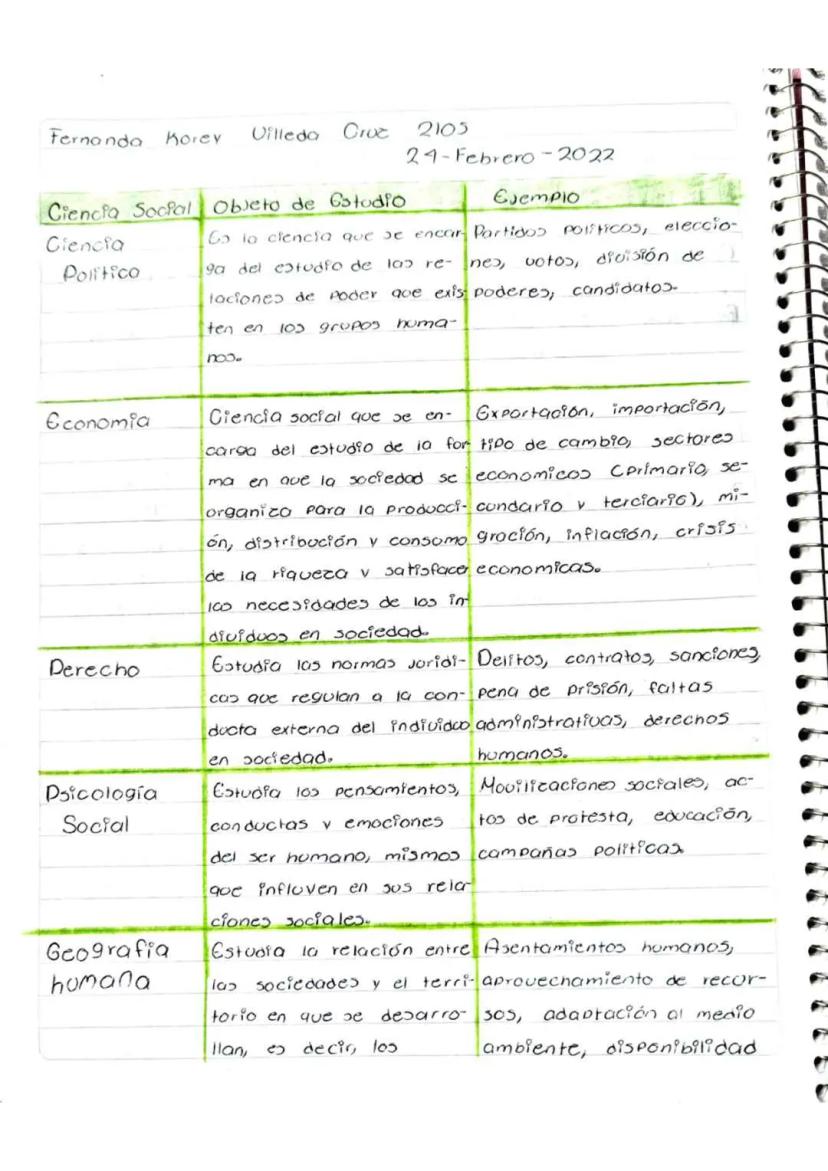 Fernanda Korey Villeda Cruz 2105
24-Febrero-2022
Ciencia Social Objeto de Estudio Ejemplo
Ciencia
Política
Es la ciencia que se encar
ga del estudio de las re-
laciones de poder que exis
ten en los grupos huma-
nos.
Partidos políticos, eleccio-
nes, votos, división de
poderes, candidatos.
Economía
Ciencia social que se en-
carga del estudio de la for
ma en que la sociedad se
organiza para la producci-
ón, distribución y consumo
de la riqueza y satisface
las necesidades de los in
dividuos en sociedad.
Exportación, importación,
tipo de cambio, sectores
economicos (primario, se-
cundario y terciario), mi-
gración, inflación, crisis
economicas.
Derecho
Estudia las normas jurídi-
cas que regulan a la con-
ducta externa del individuo
en sociedad.
Delitos, contratos, sanciones,
pena de prisión, faltas
administrativas, derechos
humanos.
Psicología
Social
Estudia los pensamientos,
conductas y emociones
del ser humano, mismos
que influyen en sus rela
ciones sociales.
Movilizaciones sociales, ac-
tos de protesta, educación,
campañas politicas.
Geografía
humana
Estudia la relación entre
las sociedades y el terri-
torio en que se desarro-
llan, es decir, los
Asentamientos humanos,
aprovechamiento de recur-
sos, adaptación al medio
ambiente, disponibilidad